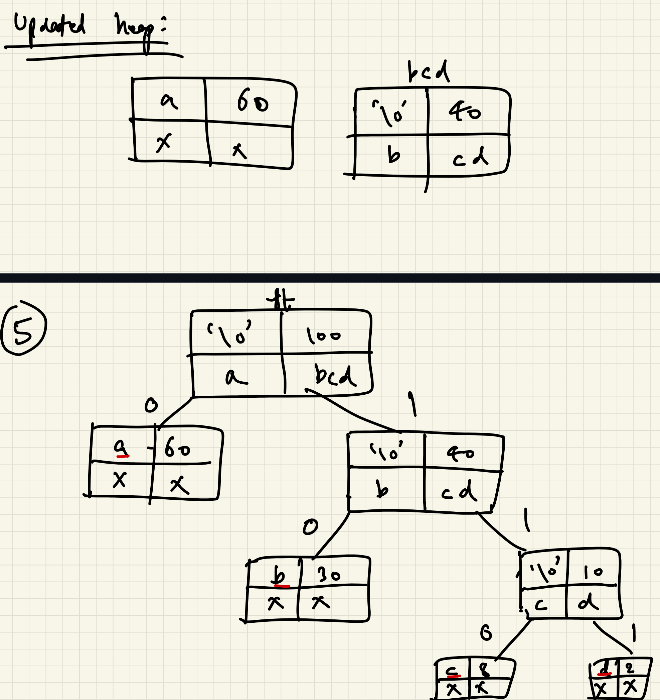 Updated heap:
a 60
x x
bcd
'\0' 40
b cd
5
ft
'\0' 100
a bcd
0 1
a 60
x x
'\0' 40
b cd
0 1
b 30
x x
'\0' 10
c d
0 1
c 8
x x
d 2
x x